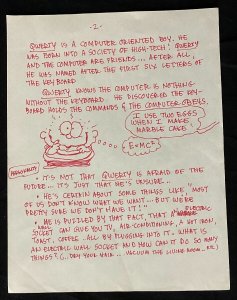 - 2 -
QWERTY IS A COMPUTER ORIENTED BOY. HE
WAS BORN INTO A SOCIETY OF HIGH-TECH! QWERTY
AND THE COMPUTER ARE FRIENDS... AFTER ALL
HE WAS NAMED AFTER THE FIRST SIX LETTERS OF
THE KEYBOARD.
QWERTY KNOWS THE COMPUTER IS NOTHING
WITHOUT THE KEYBOARD. HE DISCOVERED THE KEY-
BOARD HOLDS THE COMMANDS & THE COMPUTER OBEYS.
I USE TWO EGGS
WHEN I MAKE
MARBLE CAKE
E=MC²
PERSONALITY
• IT'S NOT THAT QWERTY IS AFRAID OF THE
FUTURE... IT'S JUST THAT HE'S UNSURE..
• HE'S CERTAIN ABOUT SOME THINGS LIKE "MOST
OF US DON'T KNOW WHAT WE WANT... BUT WE'RE
PRETTY SURE WE DON'T HAVE IT!"
• HE IS PUZZLED BY THAT FACT, THAT A ELECTRIC
WALL SOCKET CAN GIVE YOU TV, AIR-CONDITIONING, A HOT IRON,
TOAST, COFFEE.. ALL BY PLUGGING INTO IT.. WHAT IS
AN ELECTRIC WALL SOCKET AND HOW CAN IT DO SO MANY
THINGS? (.. DRY YOUR HAIR.. VACUUM THE LIVING ROOM.. ETC)